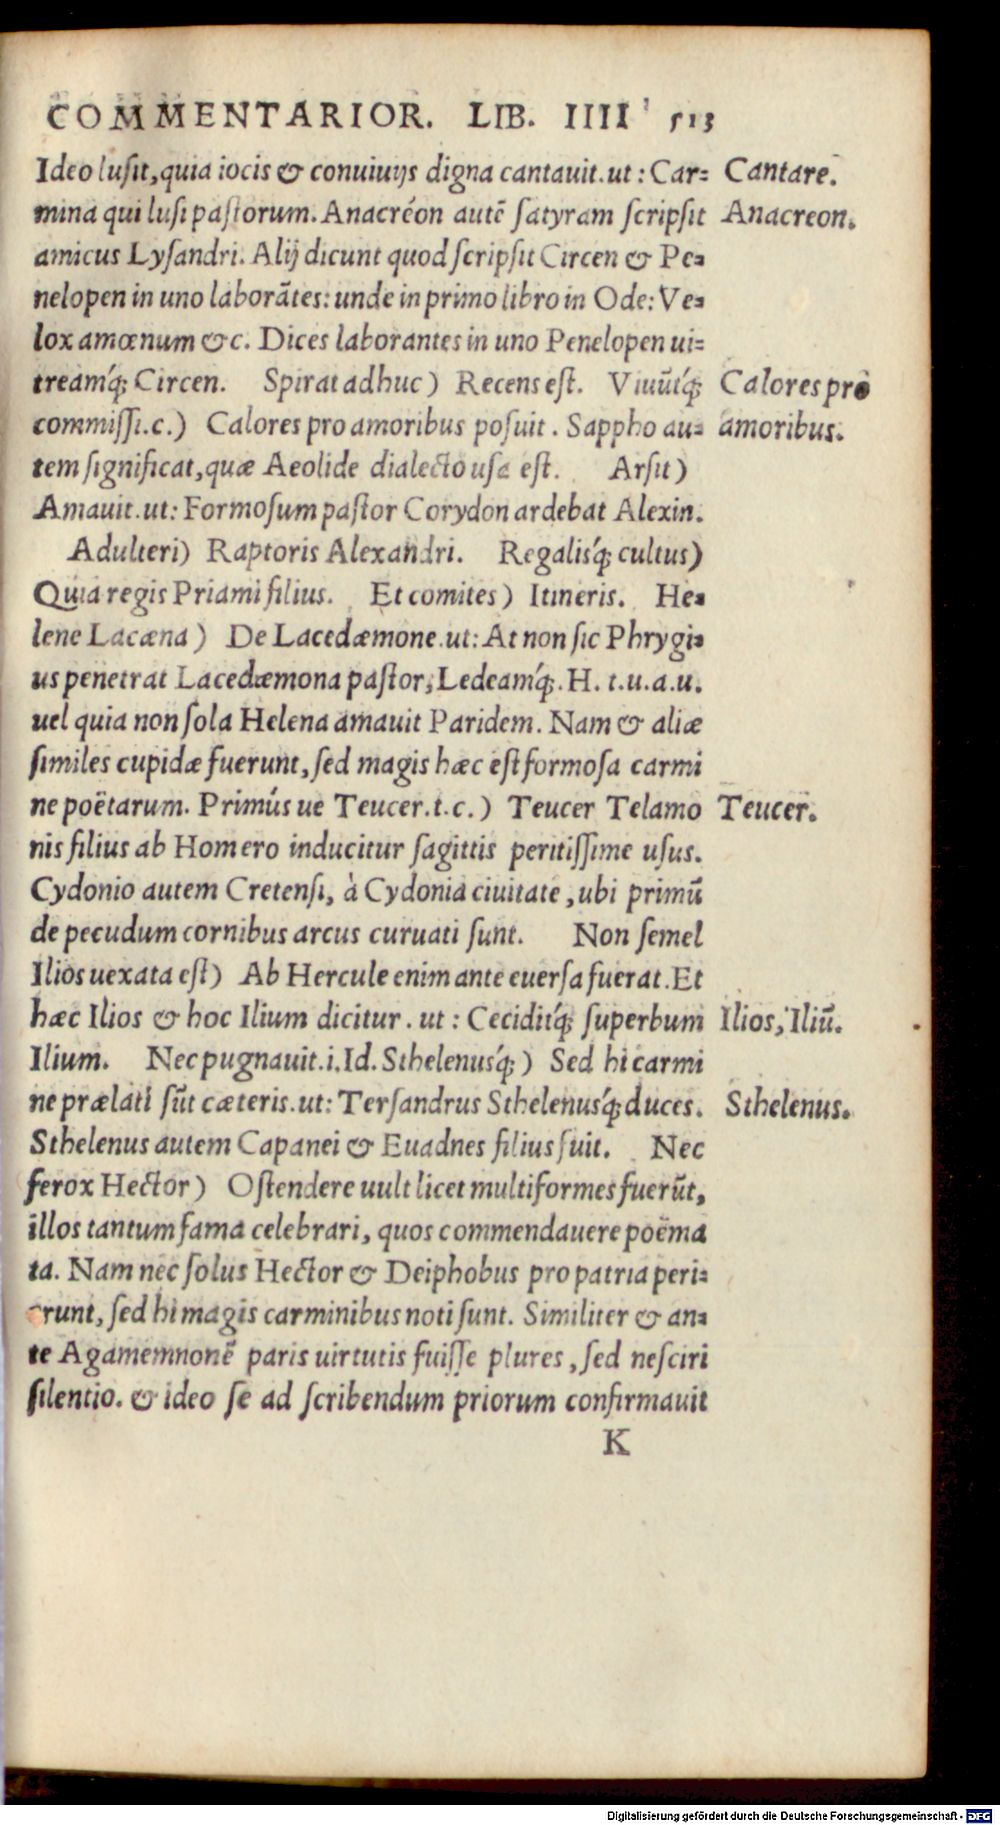 COMMENTARIOR. LIB. IIII 513
Ideo lusit, quia iocis & conuiuijs digna cantauit. ut: Car= Cantare.
mina qui lusi pastorum. Anacréon autẽ satyram scripsit Anacreon.
amicus Lysandri. Alij dicunt quod scripsit Circen & Pe=
nelopen in uno laborãtes: unde in primo libro in Ode: Ve=
lox amœnum &c. Dices laborantes in uno Penelopen ui=
treamq́; Circen. Spirat adhuc) Recens est. Viuũtq́; Calores pro
commissi.c.) Calores pro amoribus posuit. Sappho au= amoribus.
tem significat, quæ Aeolide dialecto usa est. Arsit)
Amauit. ut: Formosum pastor Corydon ardebat Alexin.
Adulteri) Raptoris Alexandri. Regalisq́; cultus)
Quia regis Priami filius. Et comites) Itineris. He=
lene Lacæna) De Lacedæmone. ut: At non sic Phrygi=
us penetrat Lacedæmona pastor, Ledeamq́;. H. t.u.a.u.
uel quia non sola Helena amauit Paridem. Nam & aliæ
similes cupidæ fuerunt, sed magis hæc est formosa carmi
ne poëtarum. Primús ue Teucer.t.c.) Teucer Telamo Teucer.
nis filius ab Homero inducitur sagittis peritissime usus.
Cydonio autem Cretensi, à Cydonia ciuitate, ubi primũ
de pecudum cornibus arcus curuati sunt. Non semel
Ilios uexata est) Ab Hercule enim ante euersa fuerat. Et
hæc Ilios & hoc Ilium dicitur. ut: Ceciditq́; superbum Ilios, Iliũ.
Ilium. Nec pugnauit.i.Id. Sthelenusq́;) Sed hi carmi
ne prælati sũt cæteris. ut: Tersandrus Sthelenusq́; duces. Sthelenus.
Sthelenus autem Capanei & Euadnes filius fuit. Nec
ferox Hector) Ostendere uult licet multi formes fuerũt,
illos tantum fama celebrari, quos commendauere poëma
ta. Nam nec solus Hector & Deiphobus pro patria peri=
erunt, sed hi magis carminibus noti sunt. Similiter & an=
te Agamemnonẽ paris uirtutis fuisse plures, sed nesciri
silentio. & ideo se ad scribendum priorum confirmauit
K
Digitalisierung gefördert durch die Deutsche Forschungsgemeinschaft - DFG